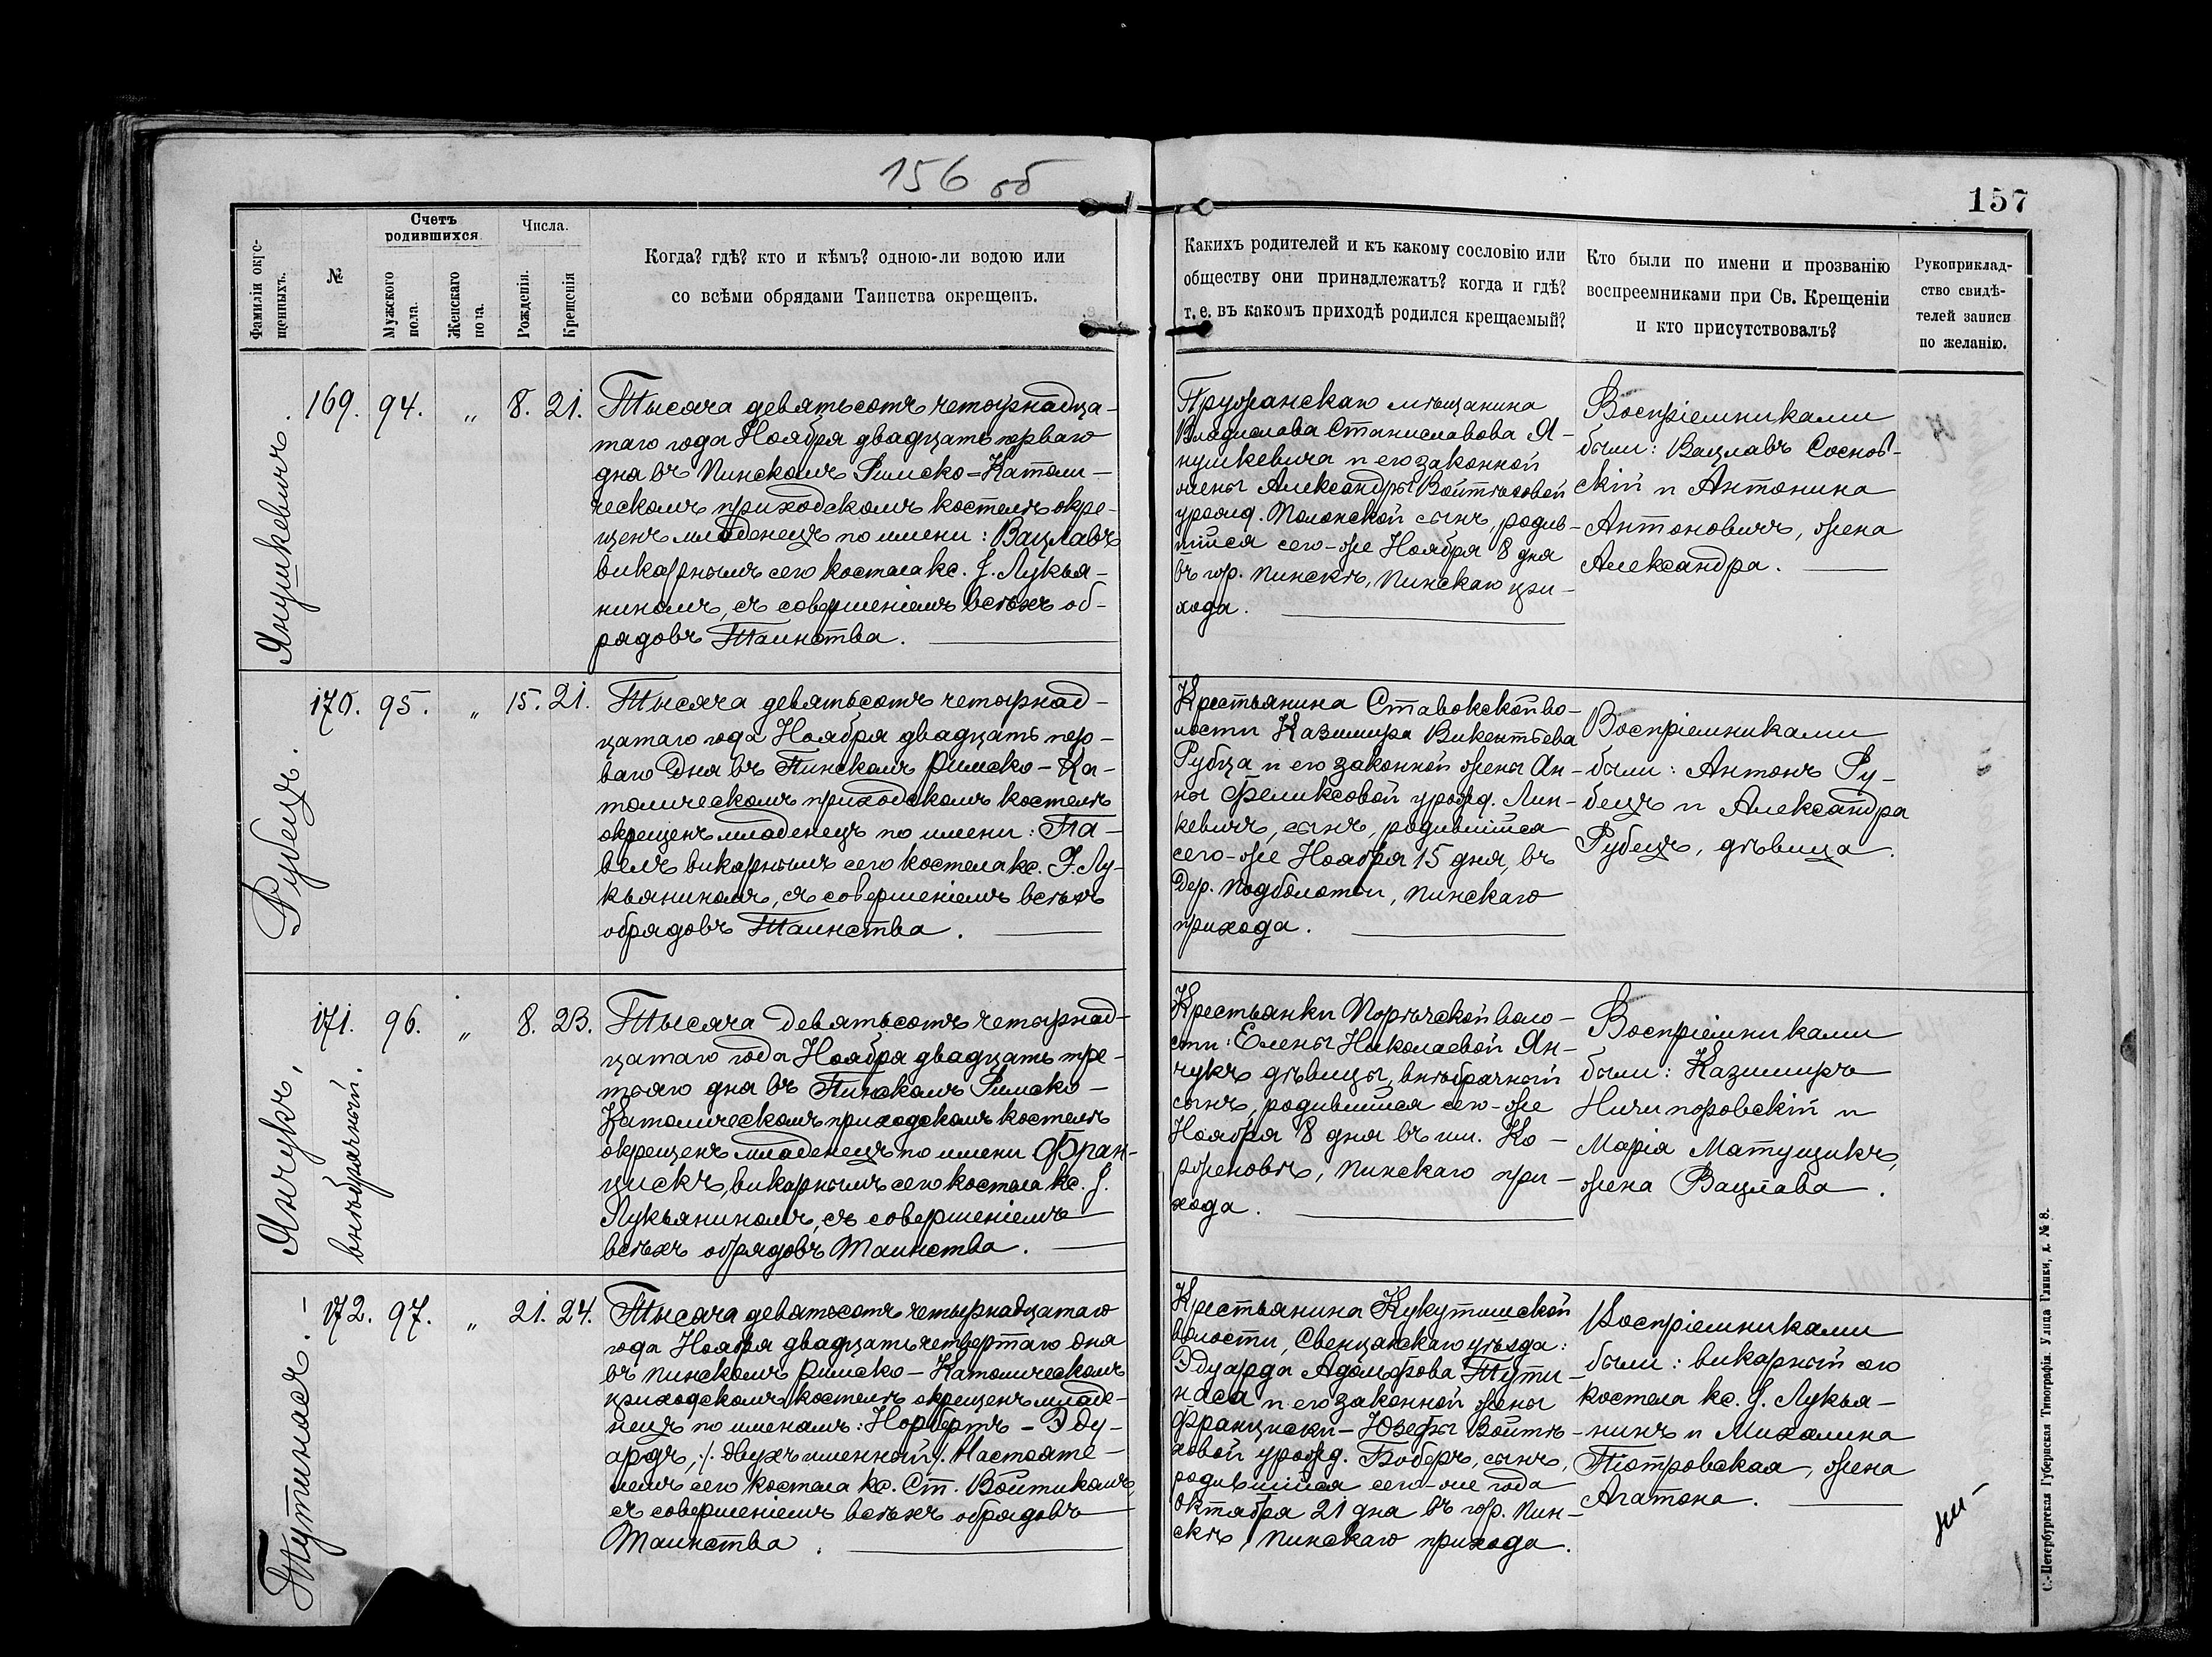 156 об
157
Фамиліи окре-
щенныхъ.
№
Счетъ
родившихся.
Мужскаго
пола.
Женскаго
пола.
Числа.
Рожденія.
Крещенія
Когда? гдѣ? кто и кѣмъ? одною-ли водою или
со всѣми обрядами Таинства окрещенъ.
Какихъ родителей и къ какому сословію или
обществу они принадлежатъ? когда и гдѣ?
т. е. въ какомъ приходѣ родился крещаемый?
Кто были по имени и прозванію
воспреемниками при Св. Крещеніи
и кто присутствовалъ?
Рукоприклад-
ство свидѣ-
телей записи
по желанію.
Янушкевичъ.
169. 94. „ 8. 21.
Тысяча девятьсотъ четырнадца-
таго года Ноября двадцать перваго
дня въ Пинскомъ Римско-Католи-
ческомъ приходскомъ костелѣ окре-
щенъ младенецъ по имени: Вацлавъ
викарнымъ сего костела кс. І. Лукья-
ниномъ, съ совершеніемъ всѣхъ об-
рядовъ Таинства.
Пружанскаго мѣщанина
Владислава Станиславова Я-
нушкевича и его законной
жены Александры Войтѣховой
урожд. Полонской сынъ, родив-
шійся сего-же Ноября 8 дня
въ гор. Пинскѣ, Пинскаго при-
хода.
Воспріемниками
были: Вацлавъ Соснов-
скій и Антонина
Антоновичъ, жена
Александра.
Рубецъ.
170. 95. „ 15. 21.
Тысяча девятьсотъ четырнад-
цатаго года Ноября двадцать пер-
ваго дня въ Пинскомъ Римско-Ка-
толическомъ приходскомъ костелѣ
окрещенъ младенецъ по имени: Па-
велъ викарнымъ сего костела кс. І. Лу-
кьяниномъ, съ совершеніемъ всѣхъ
обрядовъ Таинства.
Крестьянина Ставокской во-
лости Казимира Викентьева
Рубца и его законной жены Ан-
ны Феликсовой урожд. Лин-
кевичъ, сынъ, родившійся
сего-же Ноября 15 дня, въ
дер. Подболотьи, Пинскаго
прихода.
Воспріемниками
были: Антонъ Ру-
бецъ и Александра
Рубецъ, дѣвица.
Янчукъ,
внѣбрачный.
171. 96. „ 8. 23.
Тысяча девятьсотъ четырнад-
цатаго года Ноября двадцать тре-
тьяго дня въ Пинскомъ Римско-
Католическомъ приходскомъ костелѣ
окрещенъ младенецъ по имени Фран-
цискъ, викарнымъ сего костела кс. І.
Лукьяниномъ, съ совершеніемъ
всѣхъ обрядовъ Таинства.
Крестьянки Порѣчской воло-
сти: Елены Николаевой Ян-
чукъ дѣвицы, внѣбрачный
сынъ, родившійся сего-же
Ноября 8 дня въ им. Ко-
рженовѣ, Пинскаго при-
хода.
Воспріемниками
были: Казимиръ
Ничипоровскій и
Марія Матущикъ,
жена Вацлава.
Тутинасъ.
172. 97. „ 21. 24.
Тысяча девятьсотъ четырнадцатаго
года Ноября двадцать четвертаго дня
въ Пинскомъ Римско-Католическомъ
приходскомъ костелѣ окрещенъ младе-
нецъ по именамъ: Норбертъ-Эду-
ардъ, /. двухъименный/. Настояте-
лемъ сего костела кс. Ст. Войтикомъ,
съ совершеніемъ всѣхъ обрядовъ
Таинства.
Крестьянина Кукутишской
волости, Свенцянскаго уѣзда:
Эдуарда Адольфова Тути-
наса и его законной жены
Франциски-Юзефы Войтѣ-
ховой урожд. Боберъ, сынъ,
родившійся сего-же года
Октября 21 дня въ гор. Пин-
скѣ, Пинскаго прихода.
Воспріемниками
были: викарный сего
костела кс. І. Лукья-
нинъ и Михалина
Піотровская, жена
Агатона.
С.-Петербургская Губернская Типографія. Улица Глинки, д. № 8.